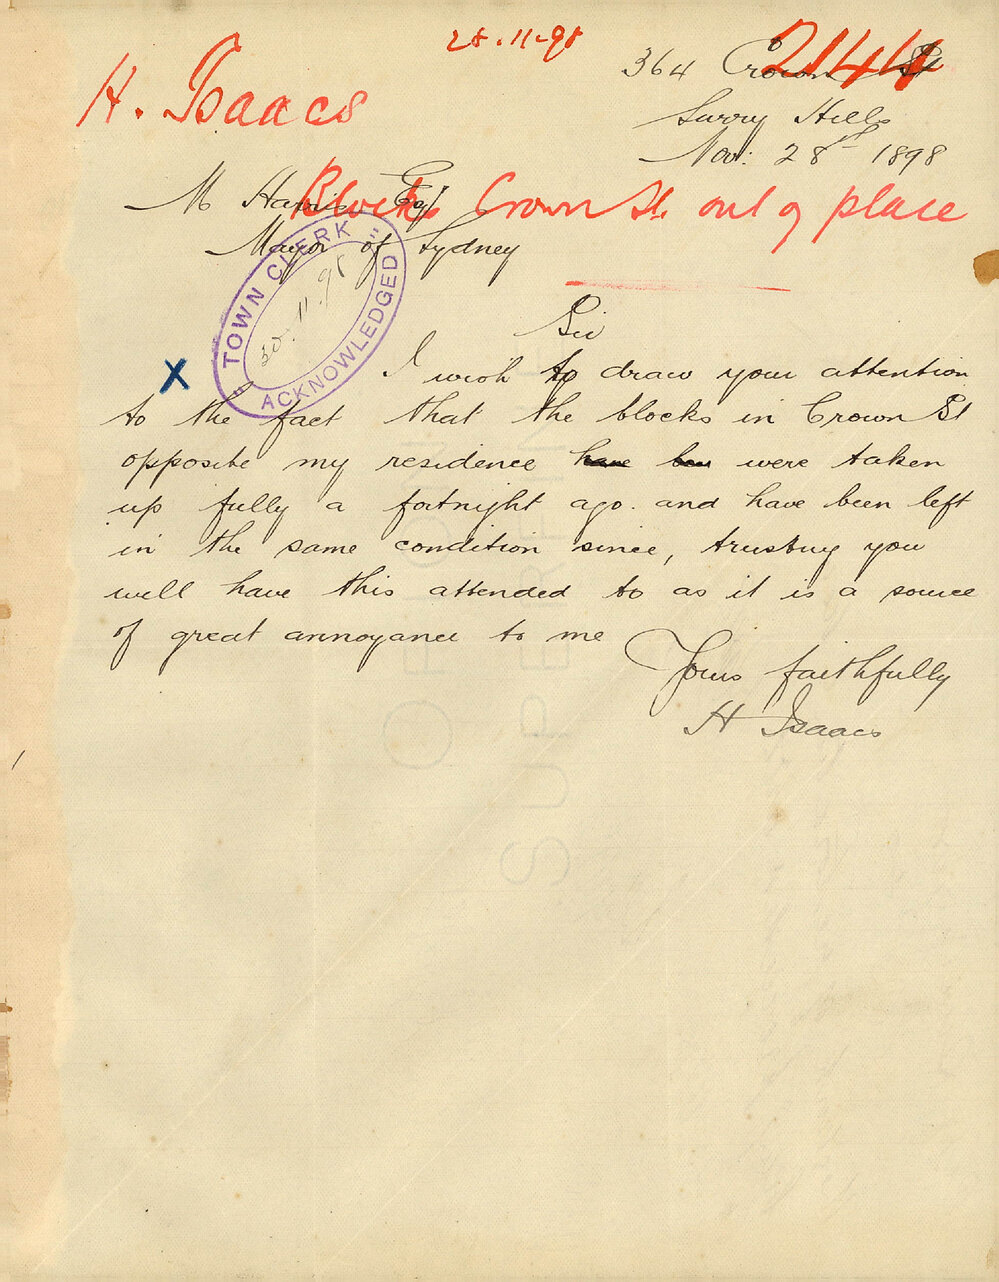 28.11.98
2144
H. Isaacs
364 Crown St
Surry Hills
Nov: 28th 1898
M Harris Esq
Blocks Crown St. out of place
Mayor of Sydney
"TOWN CLERK"
30.11.98
ACKNOWLEDGED
Sir
X
I wish to draw your attention
to the fact that the blocks in Crown St
opposite my residence have been were taken
up fully a fortnight ago. and have been left
in the same condition since, trusting you
will have this attended to as it is a source
of great annoyance to me
Yours faithfully
H Isaacs